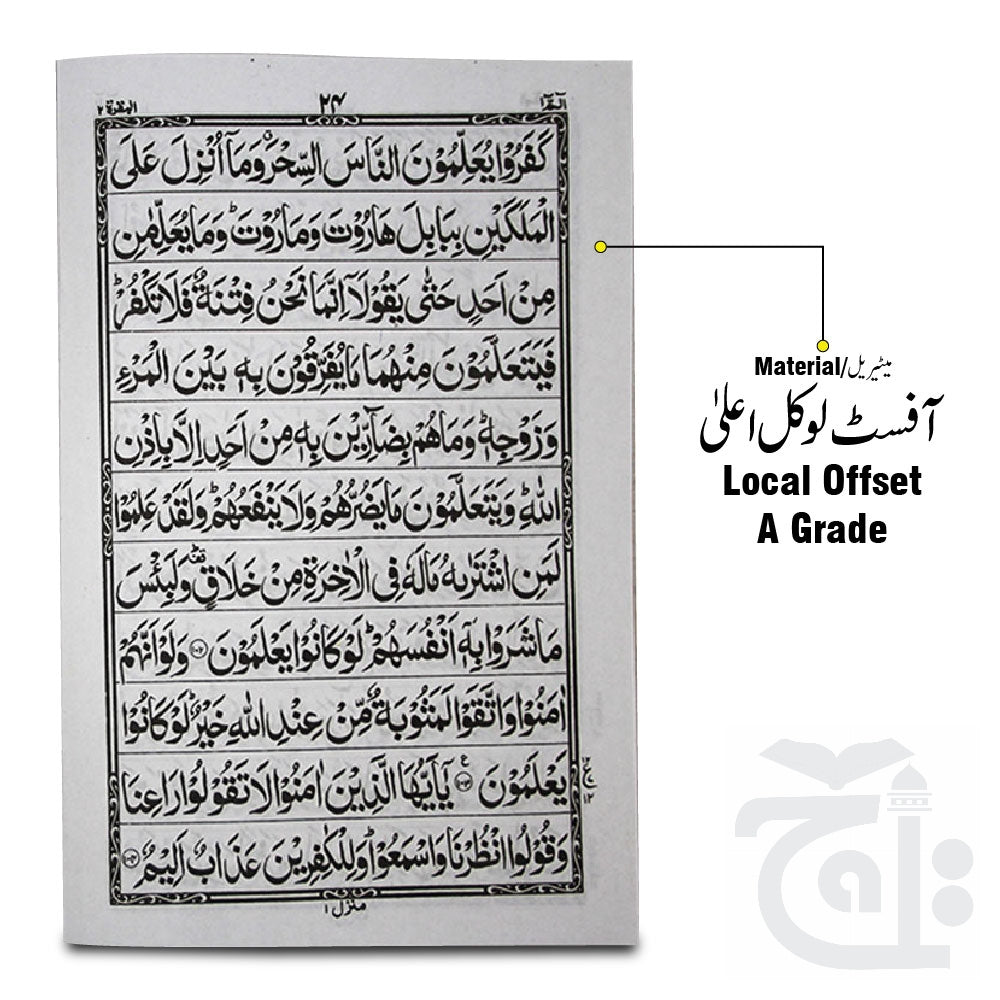 الٓمّٓ ۱
۲۴
البقرۃ ۲
كَفَرُوْا يُعَلِّمُوْنَ النَّاسَ السِّحْرَ ۗ وَمَآ اُنْزِلَ عَلَى
الْمَلَكَيْنِ بِبَابِلَ هَارُوْتَ وَمَارُوْتَ ؕ وَمَا يُعَلِّمٰنِ
مِنْ اَحَدٍ حَتّٰى يَقُوْلَاۤ اِنَّمَا نَحْنُ فِتْنَةٌ فَلَا تَكْفُرْ ؕ
فَيَتَعَلَّمُوْنَ مِنْهُمَا مَا يُفَرِّقُوْنَ بِهٖ بَيْنَ الْمَرْءِ
وَزَوْجِهٖ ؕ وَمَا هُمْ بِضَآرِّيْنَ بِهٖ مِنْ اَحَدٍ اِلَّا بِاِذْنِ
اللّٰهِ ؕ وَيَتَعَلَّمُوْنَ مَا يَضُرُّهُمْ وَلَا يَنْفَعُهُمْ ؕ وَلَقَدْ عَلِمُوْا
لَمَنِ اشْتَرٰىهُ مَا لَهٗ فِى الْاٰخِرَةِ مِنْ خَلَاقٍ ؕ وَلَبِئْسَ
مَا شَرَوْا بِهٖۤ اَنْفُسَهُمْ ؕ لَوْ كَانُوْا يَعْلَمُوْنَ ۝۱۰۲ وَلَوْ اَنَّهُمْ
اٰمَنُوْا وَاتَّقَوْا لَمَثُوْبَةٌ مِّنْ عِنْدِ اللّٰهِ خَيْرٌ ؕ لَوْ كَانُوْا
يَعْلَمُوْنَ ۝۱۰۳ يٰۤاَيُّهَا الَّذِيْنَ اٰمَنُوْا لَا تَقُوْلُوْا رَاعِنَا
وَقُوْلُوا انْظُرْنَا وَاسْمَعُوْا ؕ وَلِلْكٰفِرِيْنَ عَذَابٌ اَلِيْمٌ ۝۱۰۴
منزل ۱
Material/میٹیریل
آفسٹ لوکل اعلیٰ
Local Offset
A Grade